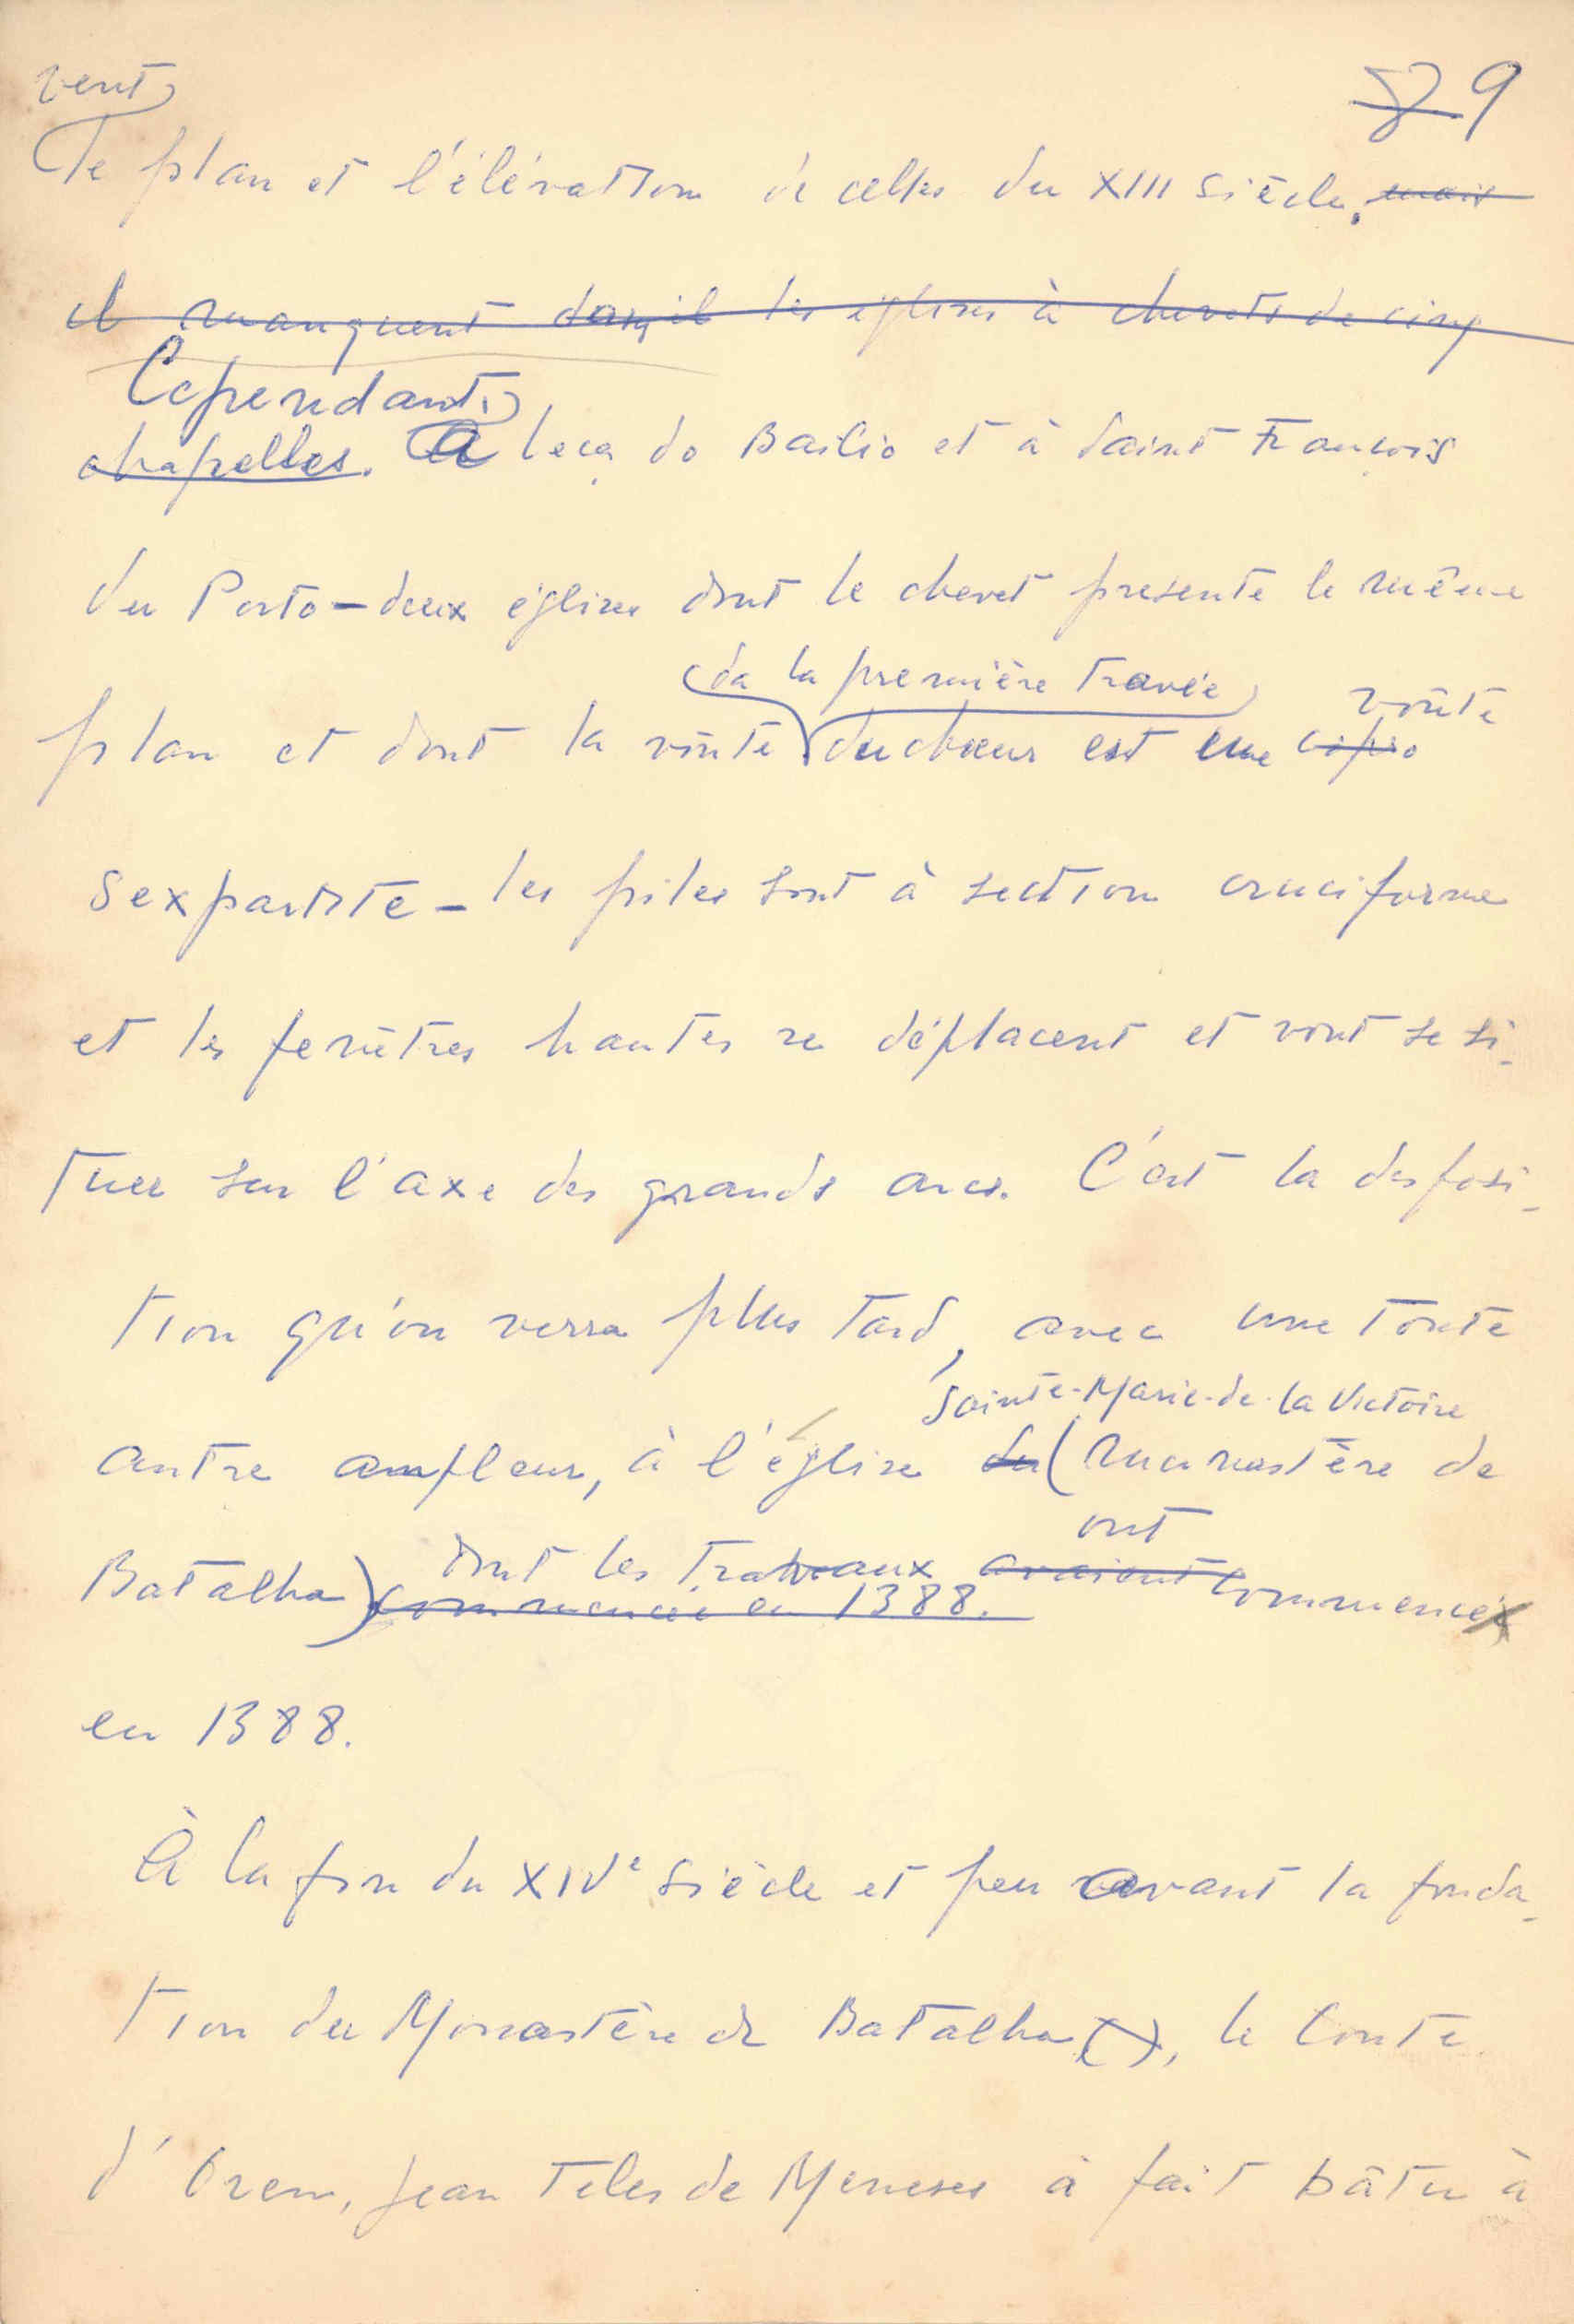 8 9
vent
le plan et l'élévation de celles du XIII siècle. mais
il manquent les églises à chevets de cinq
Cependant,
chapelles. A Leça do Bailio et à Saint François
du Porto - deux églises dont le chevet presente le même
de la première travée
voûte
plan et dont la voûte du chœur est une
sexpartite - les piles sont à section cruciforme
et les fenêtres hautes se déplacent et vont se si-
tuer sur l'axe des grands arcs. C'est la desposi-
tion qu'on verra plus tard, avec une toute
Sainte-Marie-de-la Victoire
autre ampleur, à l'église du (Monastère de
ont
dont les travaux avaient commencé
Batalha) commencée en 1388.
en 1388.
À la fin du XIVe siècle et peu avant la fonda-
tion du Monastère de Batalha ( ), le Conte
d'Orem, Jean Teles de Meneses à fait bâtir à